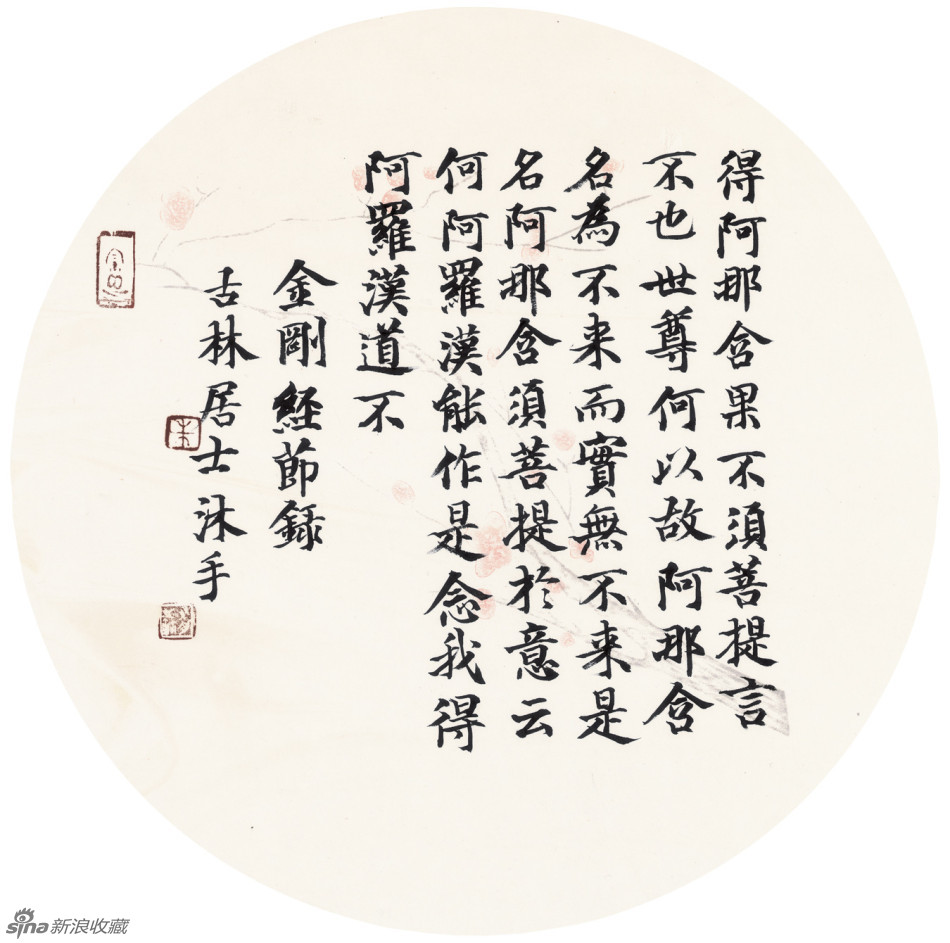 得阿那含果不須菩提言
不也世尊何以故阿那含
名為不来而實無不来是
名阿那含須菩提於意云
何阿羅漢能作是念我得
阿羅漢道不
金剛経節録
古林居士沐手
sina新浪收藏